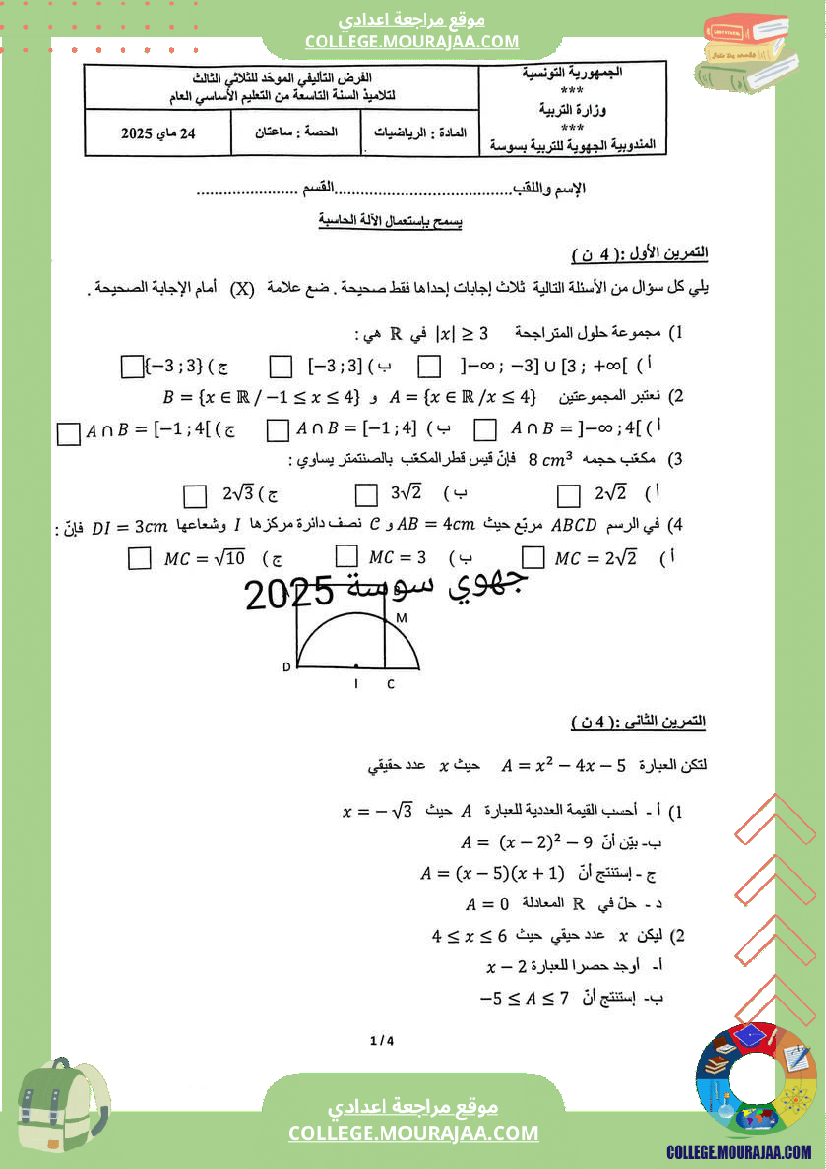 موقع مراجعة اعدادي
COLLEGE.MOURAJAA.COM
الجمهورية التونسية
***
وزارة التربية
***
المندوبية الجهوية للتربية بسوسة
الفرض التأليفي الموحّد للثلاثي الثالث
لتلاميذ السنة التاسعة من التعليم الأساسي العام
المادة : الرياضيات
الحصة : ساعتان
24 ماي 2025
الإسم واللقب.......................................القسم ......................
يسمح بإستعمال الآلة الحاسبة
التمرين الأول :( 4 ن )
يلي كل سؤال من الأسئلة التالية ثلاث إجابات إحداها فقط صحيحة . ضع علامة (X) أمام الإجابة الصحيحة .
1) مجموعة حلول المتراجحة |x| ≥ 3 في ℝ هي :
أ ) ]−∞ ; −3] ∪ [3 ; +∞[ ب ) [−3 ;3] ج ) {−3 ;3}
2) نعتبر المجموعتين A = {x ∈ ℝ /x ≤ 4} و B = {x ∈ ℝ / −1 ≤ x ≤ 4}
أ ) A ∩ B = ]−∞ ; 4[ ب ) A ∩ B = [−1 ; 4] ج ) A ∩ B = [−1 ; 4[
3) مكعّب حجمه 8 cm³ فإنّ قيس قطر المكعّب بالصنتمتر يساوي :
أ ) 2√2 ب ) 3√2 ج ) 2√3
4) في الرسم ABCD مربّع حيث AB = 4cm و 𝒞 نصف دائرة مركزها I وشعاعها DI = 3cm فإنّ :
أ ) MC = 2√2 ب ) MC = 3 ج ) MC = √10
جهوي سوسة 2025
M
D
I C
التمرين الثاني :( 4 ن )
لتكن العبارة A = x² − 4x − 5 حيث x عدد حقيقي
1) أ - أحسب القيمة العددية للعبارة A حيث x = − √3
ب- بيّن أنّ A = (x − 2)² − 9
ج - إستنتج أنّ A = (x − 5)(x + 1)
د - حلّ في ℝ المعادلة A = 0
2) ليكن x عدد حيقي حيث 4 ≤ x ≤ 6
أ- أوجد حصرا للعبارة x − 2
ب- إستنتج أنّ −5 ≤ A ≤ 7
1 / 4
موقع مراجعة اعدادي
COLLEGE.MOURAJAA.COM
COLLEGE.MOURAJAA.COM